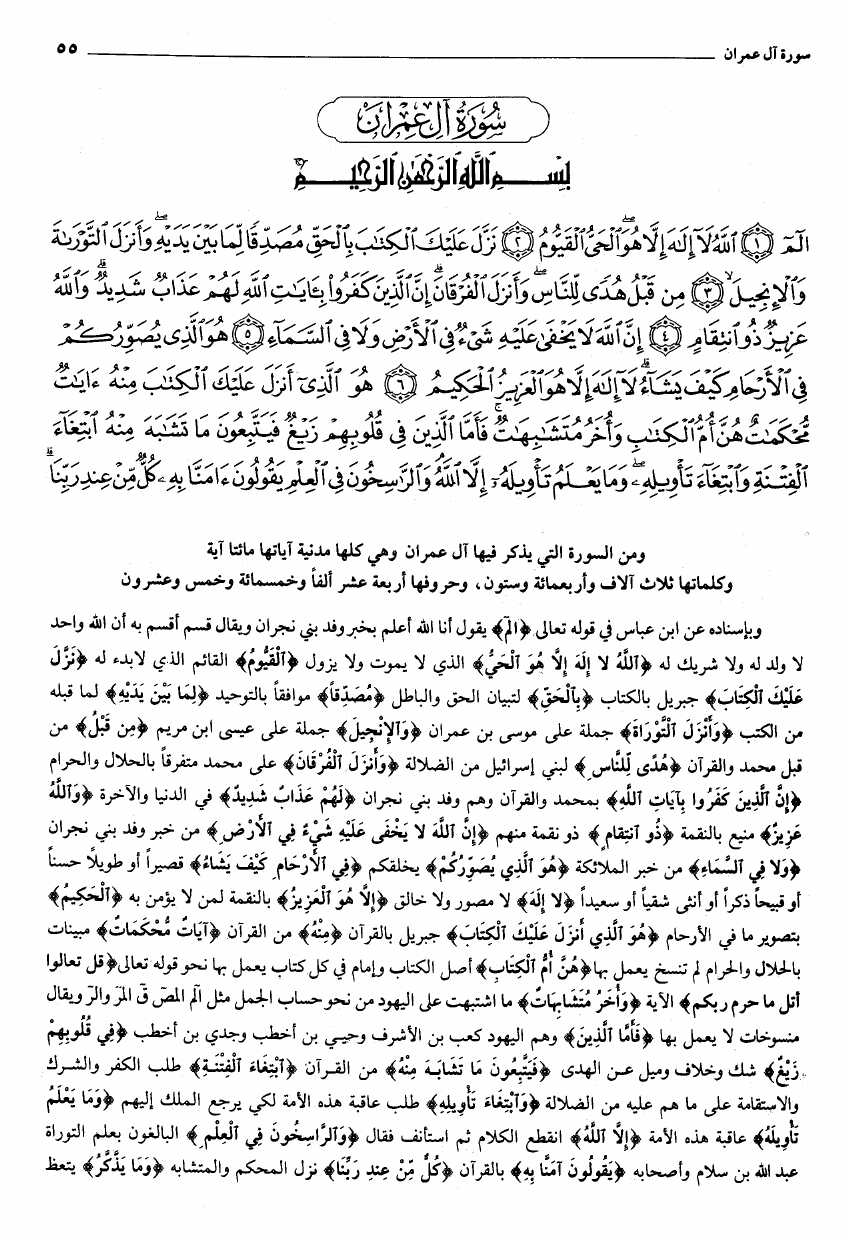 سورة آل عمران ٥٥
سُورَةُ آلِ عِمْرَانَ
بِسْمِ اللَّهِ الرَّحْمَٰنِ الرَّحِيمِ
الٓمٓ ١ ٱللَّهُ لَآ إِلَٰهَ إِلَّا هُوَ ٱلْحَىُّ ٱلْقَيُّومُ ٢ نَزَّلَ عَلَيْكَ ٱلْكِتَٰبَ بِٱلْحَقِّ مُصَدِّقًا لِّمَا بَيْنَ يَدَيْهِ وَأَنزَلَ ٱلتَّوْرَىٰةَ
وَٱلْإِنجِيلَ ٣ مِن قَبْلُ هُدًى لِّلنَّاسِ وَأَنزَلَ ٱلْفُرْقَانَ إِنَّ ٱلَّذِينَ كَفَرُوا۟ بِـَٔايَٰتِ ٱللَّهِ لَهُمْ عَذَابٌ شَدِيدٌ وَٱللَّهُ
عَزِيزٌ ذُو ٱنتِقَامٍ ٤ إِنَّ ٱللَّهَ لَا يَخْفَىٰ عَلَيْهِ شَىْءٌ فِى ٱلْأَرْضِ وَلَا فِى ٱلسَّمَآءِ ٥ هُوَ ٱلَّذِى يُصَوِّرُكُمْ
فِى ٱلْأَرْحَامِ كَيْفَ يَشَآءُ لَآ إِلَٰهَ إِلَّا هُوَ ٱلْعَزِيزُ ٱلْحَكِيمُ ٦ هُوَ ٱلَّذِىٓ أَنزَلَ عَلَيْكَ ٱلْكِتَٰبَ مِنْهُ ءَايَٰتٌ
مُّحْكَمَٰتٌ هُنَّ أُمُّ ٱلْكِتَٰبِ وَأُخَرُ مُتَشَٰبِهَٰتٌ فَأَمَّا ٱلَّذِينَ فِى قُلُوبِهِمْ زَيْغٌ فَيَتَّبِعُونَ مَا تَشَٰبَهَ مِنْهُ ٱبْتِغَآءَ
ٱلْفِتْنَةِ وَٱبْتِغَآءَ تَأْوِيلِهِۦ وَمَا يَعْلَمُ تَأْوِيلَهُۥٓ إِلَّا ٱللَّهُ وَٱلرَّٰسِخُونَ فِى ٱلْعِلْمِ يَقُولُونَ ءَامَنَّا بِهِۦ كُلٌّ مِّنْ عِندِ رَبِّنَا
ومن السورة التي يذكر فيها آل عمران وهي كلها مدنية آياتها مائتا آية
وكلماتها ثلاث آلاف وأربعمائة وستون، وحروفها أربعة عشر ألفاً وخمسمائة وخمس وعشرون
وبإسناده عن ابن عباس في قوله تعالى ﴿الٓمٓ﴾ يقول أنا الله أعلم بخبر وفد بني نجران ويقال قسم أقسم به أن الله واحد
لا ولد له ولا شريك له ﴿ٱللَّهُ لَا إِلَهَ إِلَّا هُوَ ٱلْحَيُّ﴾ الذي لا يموت ولا يزول ﴿ٱلْقَيُّومُ﴾ القائم الذي لا بدء له ﴿نَزَّلَ
عَلَيْكَ ٱلْكِتَابَ﴾ جبريل بالكتاب ﴿بِٱلْحَقِّ﴾ لتبيان الحق والباطل ﴿مُصَدِّقاً﴾ موافقاً بالتوحيد ﴿لِمَا بَيْنَ يَدَيْهِ﴾ لما قبله
من الكتب ﴿وَأَنْزَلَ ٱلتَّوْرَاةَ﴾ جملة على موسى بن عمران ﴿وَٱلإِنْجِيلَ﴾ جملة على عيسى ابن مريم ﴿مِن قَبْلُ﴾ من
قبل محمد والقرآن ﴿هُدًى لِّلنَّاسِ﴾ لبني إسرائيل من الضلالة ﴿وَأَنزَلَ ٱلْفُرْقَانَ﴾ على محمد متفرقاً بالحلال والحرام
﴿إِنَّ ٱلَّذِينَ كَفَرُوا بِآيَاتِ ٱللَّهِ﴾ بمحمد والقرآن وهم وفد بني نجران ﴿لَهُمْ عَذَابٌ شَدِيدٌ﴾ في الدنيا والآخرة ﴿وَٱللَّهُ
عَزِيزٌ﴾ منيع بالنقمة ﴿ذُو ٱنتِقَامٍ﴾ ذو نقمة منهم ﴿إِنَّ ٱللَّهَ لَا يَخْفَى عَلَيْهِ شَيْءٌ فِي ٱلأَرْضِ﴾ من خبر وفد بني نجران
﴿وَلَا فِي ٱلسَّمَاءِ﴾ من خبر الملائكة ﴿هُوَ ٱلَّذِي يُصَوِّرُكُمْ﴾ يخلقكم ﴿فِي ٱلأَرْحَامِ كَيْفَ يَشَاءُ﴾ قصيراً أو طويلاً حسناً
أو قبيحاً ذكراً أو أنثى شقياً أو سعيداً ﴿لَا إِلَهَ﴾ لا مصور ولا خالق ﴿إِلَّا هُوَ ٱلْعَزِيزُ﴾ بالنقمة لمن لا يؤمن به ﴿ٱلْحَكِيمُ﴾
بتصوير ما في الأرحام ﴿هُوَ ٱلَّذِي أَنزَلَ عَلَيْكَ ٱلْكِتَابَ﴾ جبريل بالقرآن ﴿مِنْهُ﴾ من القرآن ﴿آيَاتٌ مُّحْكَمَاتٌ﴾ مبينات
بالحلال والحرام لم تنسخ يعمل بها ﴿هُنَّ أُمُّ ٱلْكِتَابِ﴾ أصل الكتاب وإمام في كل كتاب يعمل بها نحو قوله تعالى ﴿قل تعالوا
أتل ما حرم ربكم﴾ الآية ﴿وَأُخَرُ مُتَشَابِهَاتٌ﴾ ما اشتبهت على اليهود من نحو حساب الجمل مثل الٓم الٓمٓصٓ قٓ الٓمٓر والٓر ويقال
منسوخات لا يعمل بها ﴿فَأَمَّا ٱلَّذِينَ﴾ وهم اليهود كعب بن الأشرف وحيي بن أخطب وجدي بن أخطب ﴿فِي قُلُوبِهِمْ
زَيْغٌ﴾ شك وخلاف وميل عن الهدى ﴿فَيَتَّبِعُونَ مَا تَشَابَهَ مِنْهُ﴾ من القرآن ﴿ٱبْتِغَاءَ ٱلْفِتْنَةِ﴾ طلب الكفر والشرك
والاستقامة على ما هم عليه من الضلالة ﴿وَٱبْتِغَاءَ تَأْوِيلِهِ﴾ طلب عاقبة هذه الأمة لكي يرجع الملك إليهم ﴿وَمَا يَعْلَمُ
تَأْوِيلَهُ﴾ عاقبة هذه الأمة ﴿إِلَّا ٱللَّهُ﴾ انقطع الكلام ثم استأنف فقال ﴿وَٱلرَّاسِخُونَ فِي ٱلْعِلْمِ﴾ البالغون بعلم التوراة
عبد الله بن سلام وأصحابه ﴿يَقُولُونَ آمَنَّا بِهِ﴾ بالقرآن ﴿كُلٌّ مِّنْ عِندِ رَبِّنَا﴾ نزل المحكم والمتشابه ﴿وَمَا يَذَّكَّرُ﴾ يتعظ